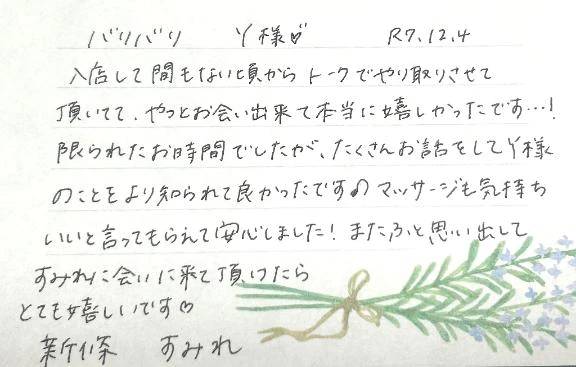 バリバリ Y様♡ R7.12.4
入店して間もない頃からトークでやり取りさせて
頂いてて、やっとお会い出来て本当に嬉しかったです…!
限られたお時間でしたが、たくさんお話をしてY様
のことをより知られて良かったです♪マッサージも気持ち
いいと言ってもらえて安心しました!またふと思い出して
すみれに会いに来て頂けたら
とても嬉しいです♡
新條 すみれ